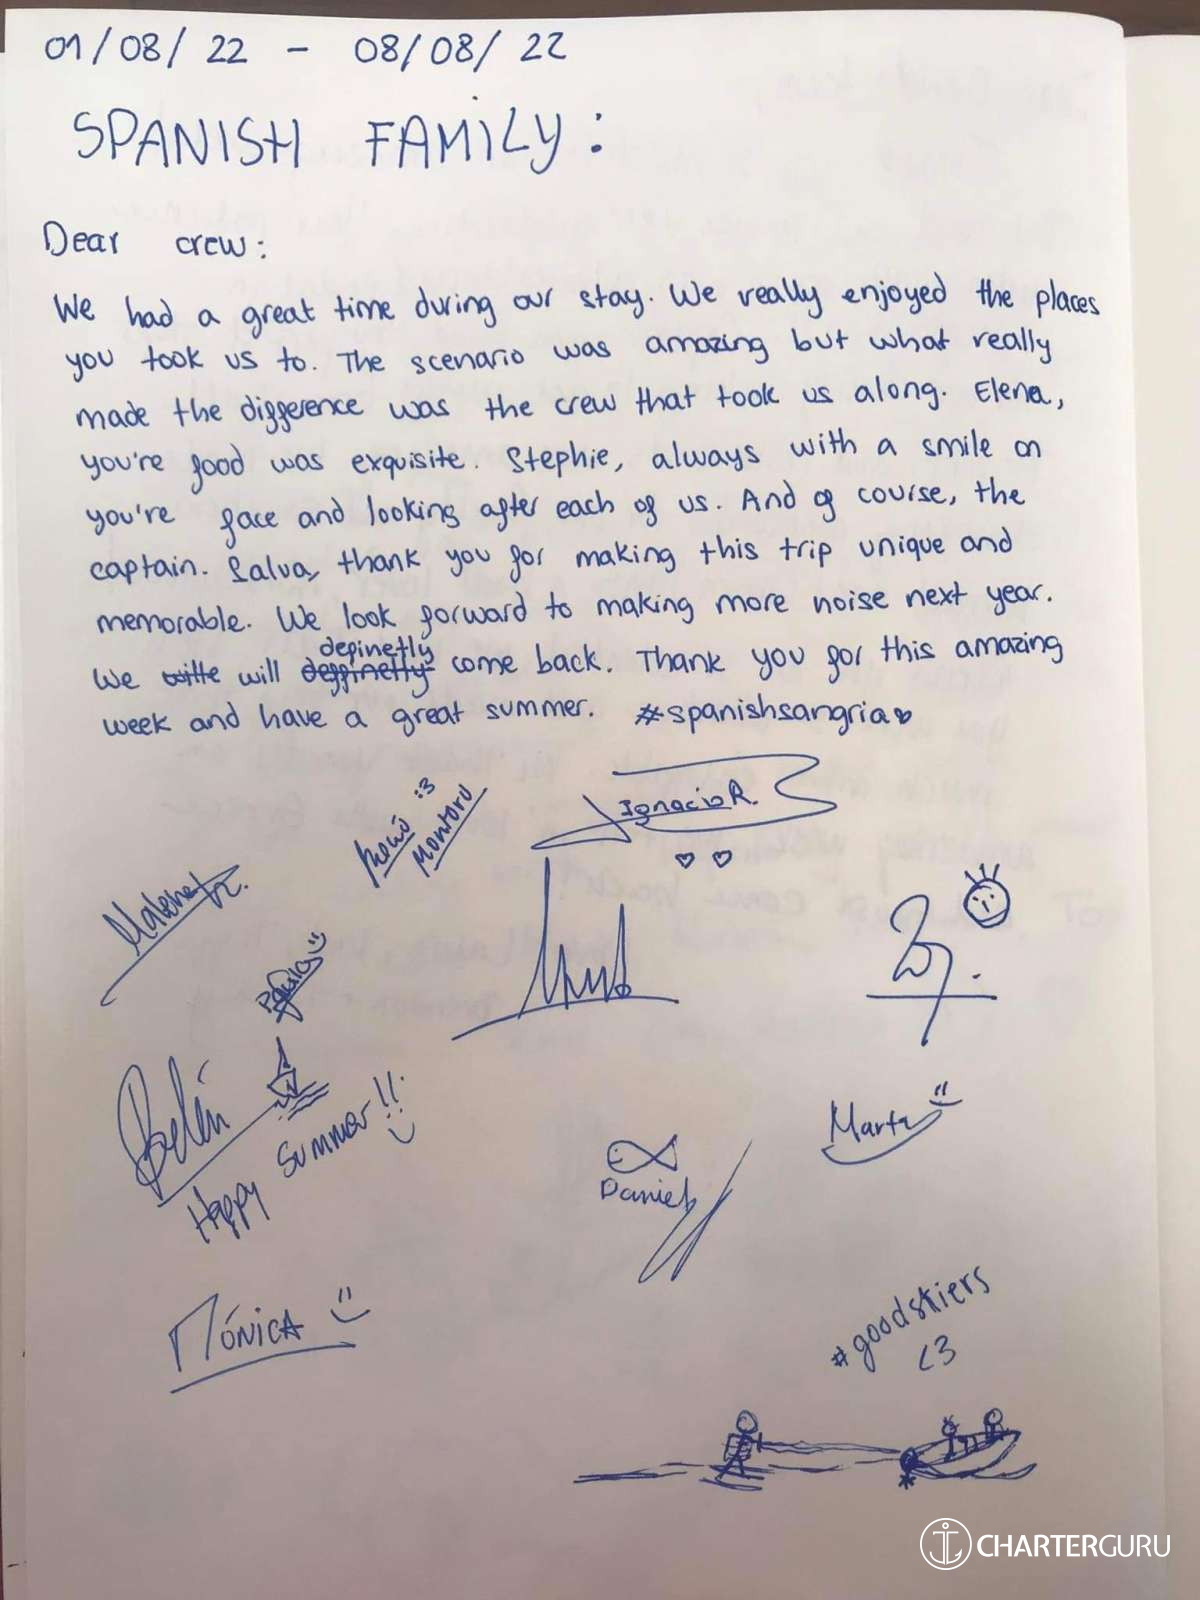 01/08/22 - 08/08/22
SPANISH FAMILY:
Dear crew:
We had a great time during our stay. We really enjoyed the places
you took us to. The scenario was amazing but what really
made the difference was the crew that took us along. Elena,
you're food was exquisite. Stephie, always with a smile on
you're face and looking after each of us. And of course, the
captain. Salva, thank you for making this trip unique and
memorable. We look forward to making more noise next year.
definetly
We will come back. Thank you for this amazing
week and have a great summer. #spanishsangria♡
:3
Montoro
Ignacio R.
Paula
Belén
Happy Summer!!
Marta
Daniel
MÓNICA
#goodskiers
<3
CHARTERGURU